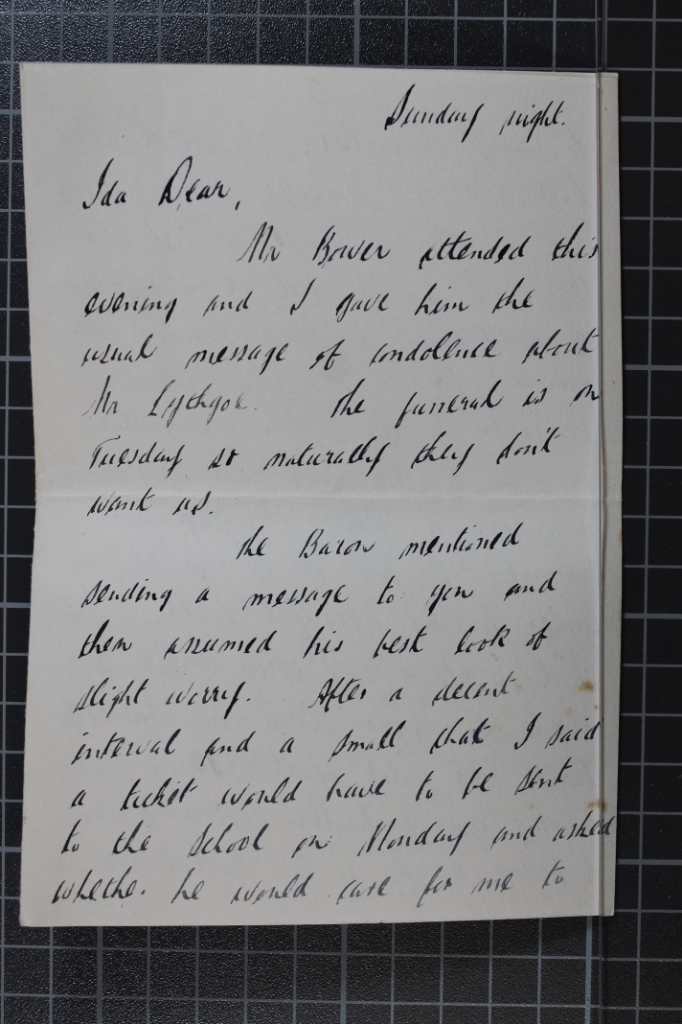 Sunday night.
Ida Dear,
Mr Bower attended this
evening and I gave him the
usual message of condolence about
Mr Lythgoe. The funeral is on
Tuesday so naturally they don't
want us.
The Baron mentioned
sending a message to you and
then assumed his best look of
slight worry. After a decent
interval and a small chat I said
a ticket would have to be sent
to the school on Monday and asked
whether he would care for me to